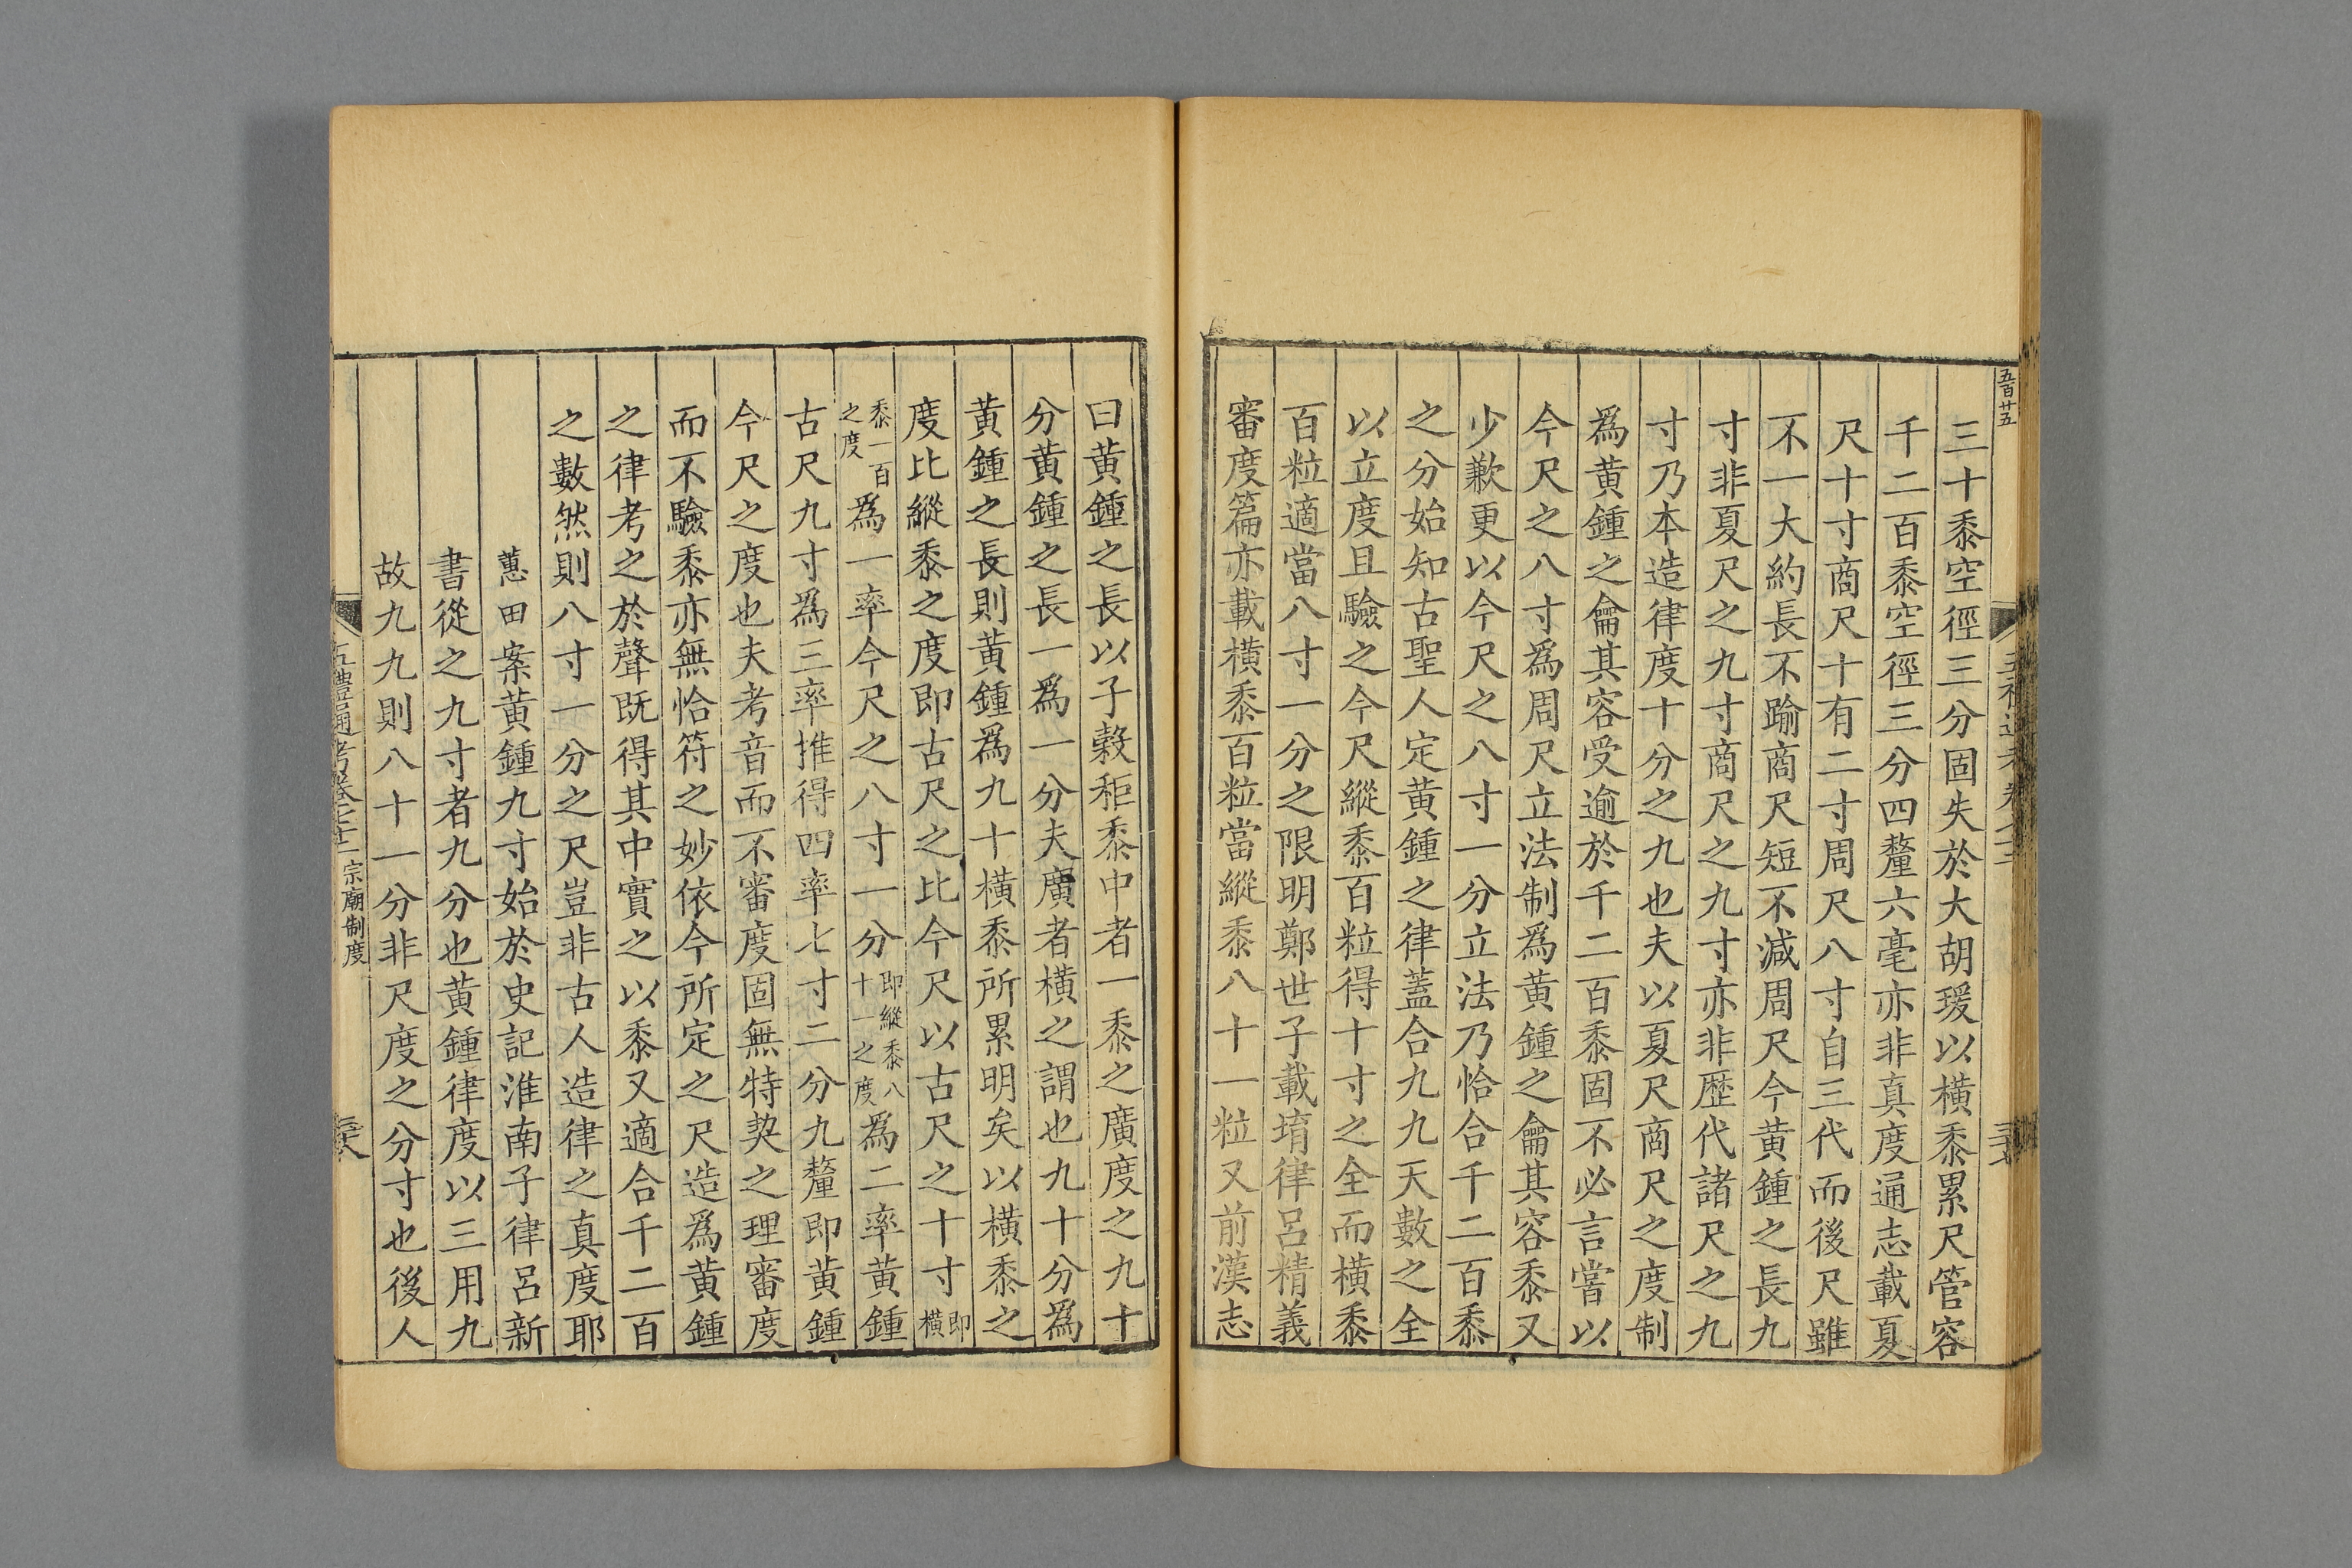 五百廿五
三十黍空徑三分固失於大胡瑗以橫黍累尺管容
千二百黍空徑三分四釐六毫亦非真度通志載夏
尺十寸商尺十有二寸周尺八寸自三代而後尺雖
不一大約長不踰商尺短不減周尺今黃鍾之長九
寸非夏尺之九寸商尺之九寸亦非歷代諸尺之九
寸乃本造律度十分之九也夫以夏尺商尺之度制
爲黃鍾之龠其容受逾於千二百黍固不必言嘗以
今尺之八寸爲周尺立法制爲黃鍾之龠其容黍又
少歉更以今尺之八寸一分立法乃恰合千二百黍
之分始知古聖人定黃鍾之律蓋合九九天數之全
以立度且驗之今尺縱黍百粒得十寸之全而橫黍
百粒適當八寸一分之限明鄭世子載堉律呂精義
審度篇亦載橫黍百粒當縱黍八十一粒又前漢志
曰黃鍾之長以子穀秬黍中者一黍之廣度之九十
分黃鍾之長一爲一分夫廣者橫之謂也九十分爲
黃鍾之長則黃鍾爲九十橫黍所累明矣以橫黍之
度比縱黍之度即古尺之比今尺以古尺之十寸即橫
黍一百之度爲一率今尺之八寸一分即縱黍八十一之度爲二率黃鍾
古尺九寸爲三率推得四率七寸二分九釐即黃鍾
今尺之度也夫考音而不審度固無特契之理審度
而不驗黍亦無恰符之妙依今所定之尺造爲黃鍾
之律考之於聲既得其中實之以黍又適合千二百
之數然則八寸一分之尺豈非古人造律之真度耶
蕙田案黃鍾九寸始於史記淮南子律呂新
書從之九寸者九分也黃鍾律度以三用九
故九九則八十一分非尺度之分寸也後人
五禮通考卷六十一 宗廟制度